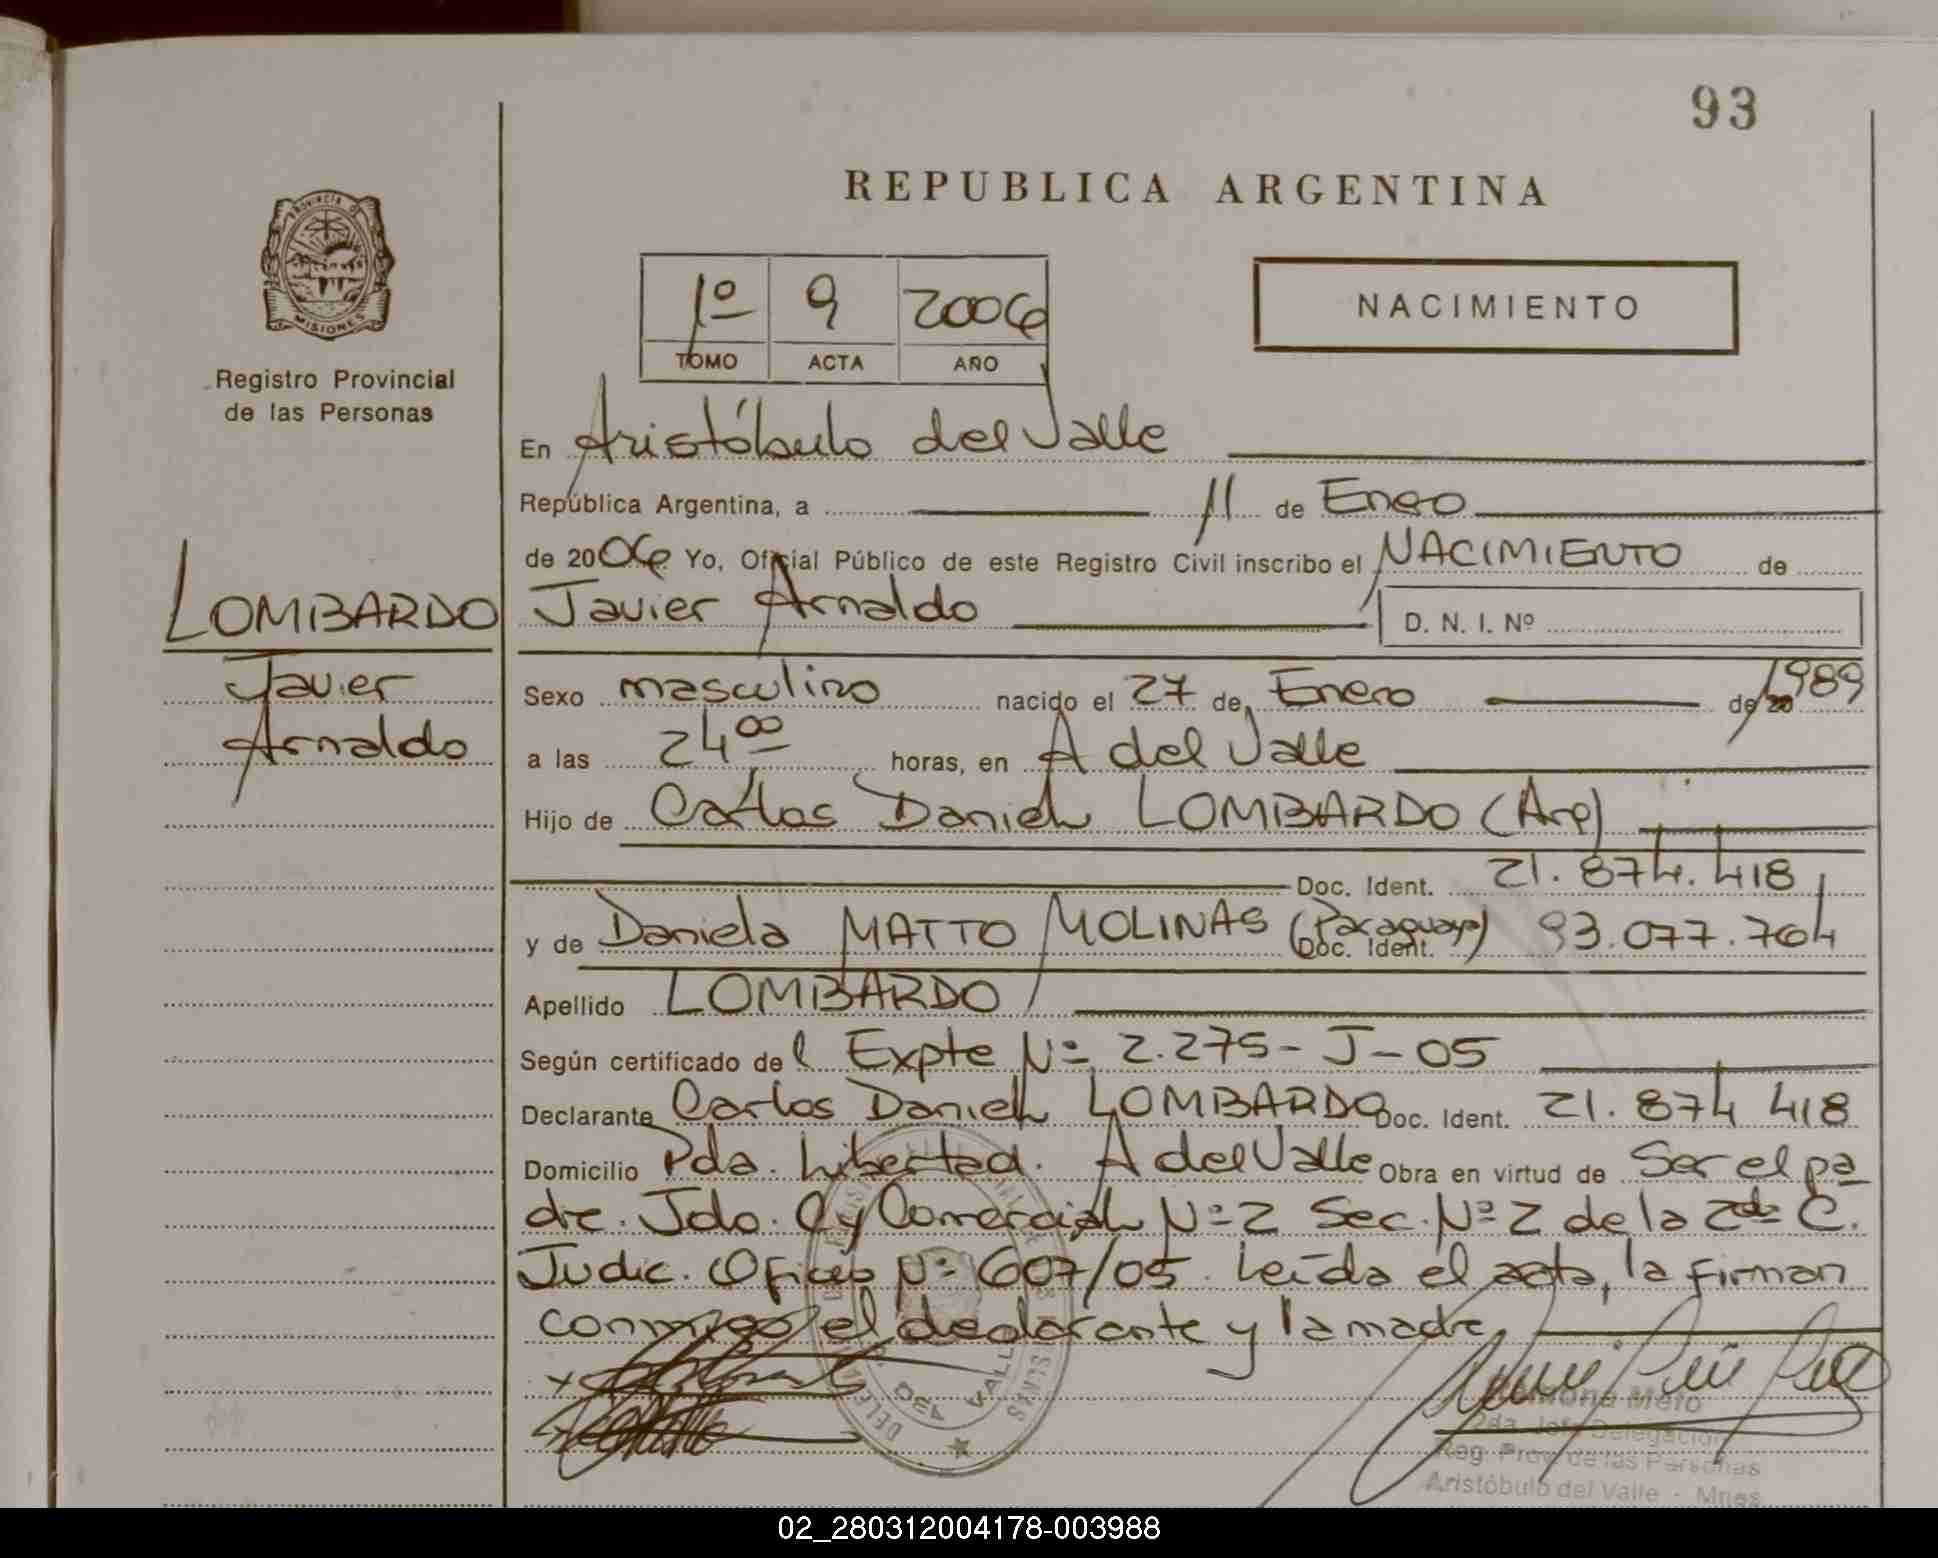 93
REPUBLICA ARGENTINA
PROVINCIA DE
MISIONES
Registro Provincial
de las Personas
1º 9 2006
TOMO ACTA AÑO
NACIMIENTO
En Aristóbulo del Valle
República Argentina, a 11 de Enero
de 2006 Yo, Oficial Público de este Registro Civil inscribo el NACIMIENTO de
LOMBARDO
Javier
Arnaldo
Javier Arnaldo D. N. I. Nº
Sexo masculino nacido el 27 de Enero de 1989
a las 24 00 horas, en A del Valle
Hijo de Carlos Daniel LOMBARDO (Arg)
Doc. Ident. 21.874.418
y de Daniela MATTO MOLINAS (Paraguaya) Doc. Ident. 93.077.704
Apellido LOMBARDO
Según certificado del Expte Nº 2.275-J-05
Declarante Carlos Daniel LOMBARDO Doc. Ident. 21.874 418
Domicilio Pda. Libertad. A del Valle Obra en virtud de Ser el pa
dre. Jdo. C y Comercial Nº 2 Sec. Nº 2 de la 2da C.
Judic. Oficio Nº 607/05. Leída el acta, la firman
conmigo el declarante y la madre
Ramona Melo
2da. Jefe Delegación
Reg. Prov. de las Personas
Aristóbulo del Valle - Mnes
02_280312004178-003988